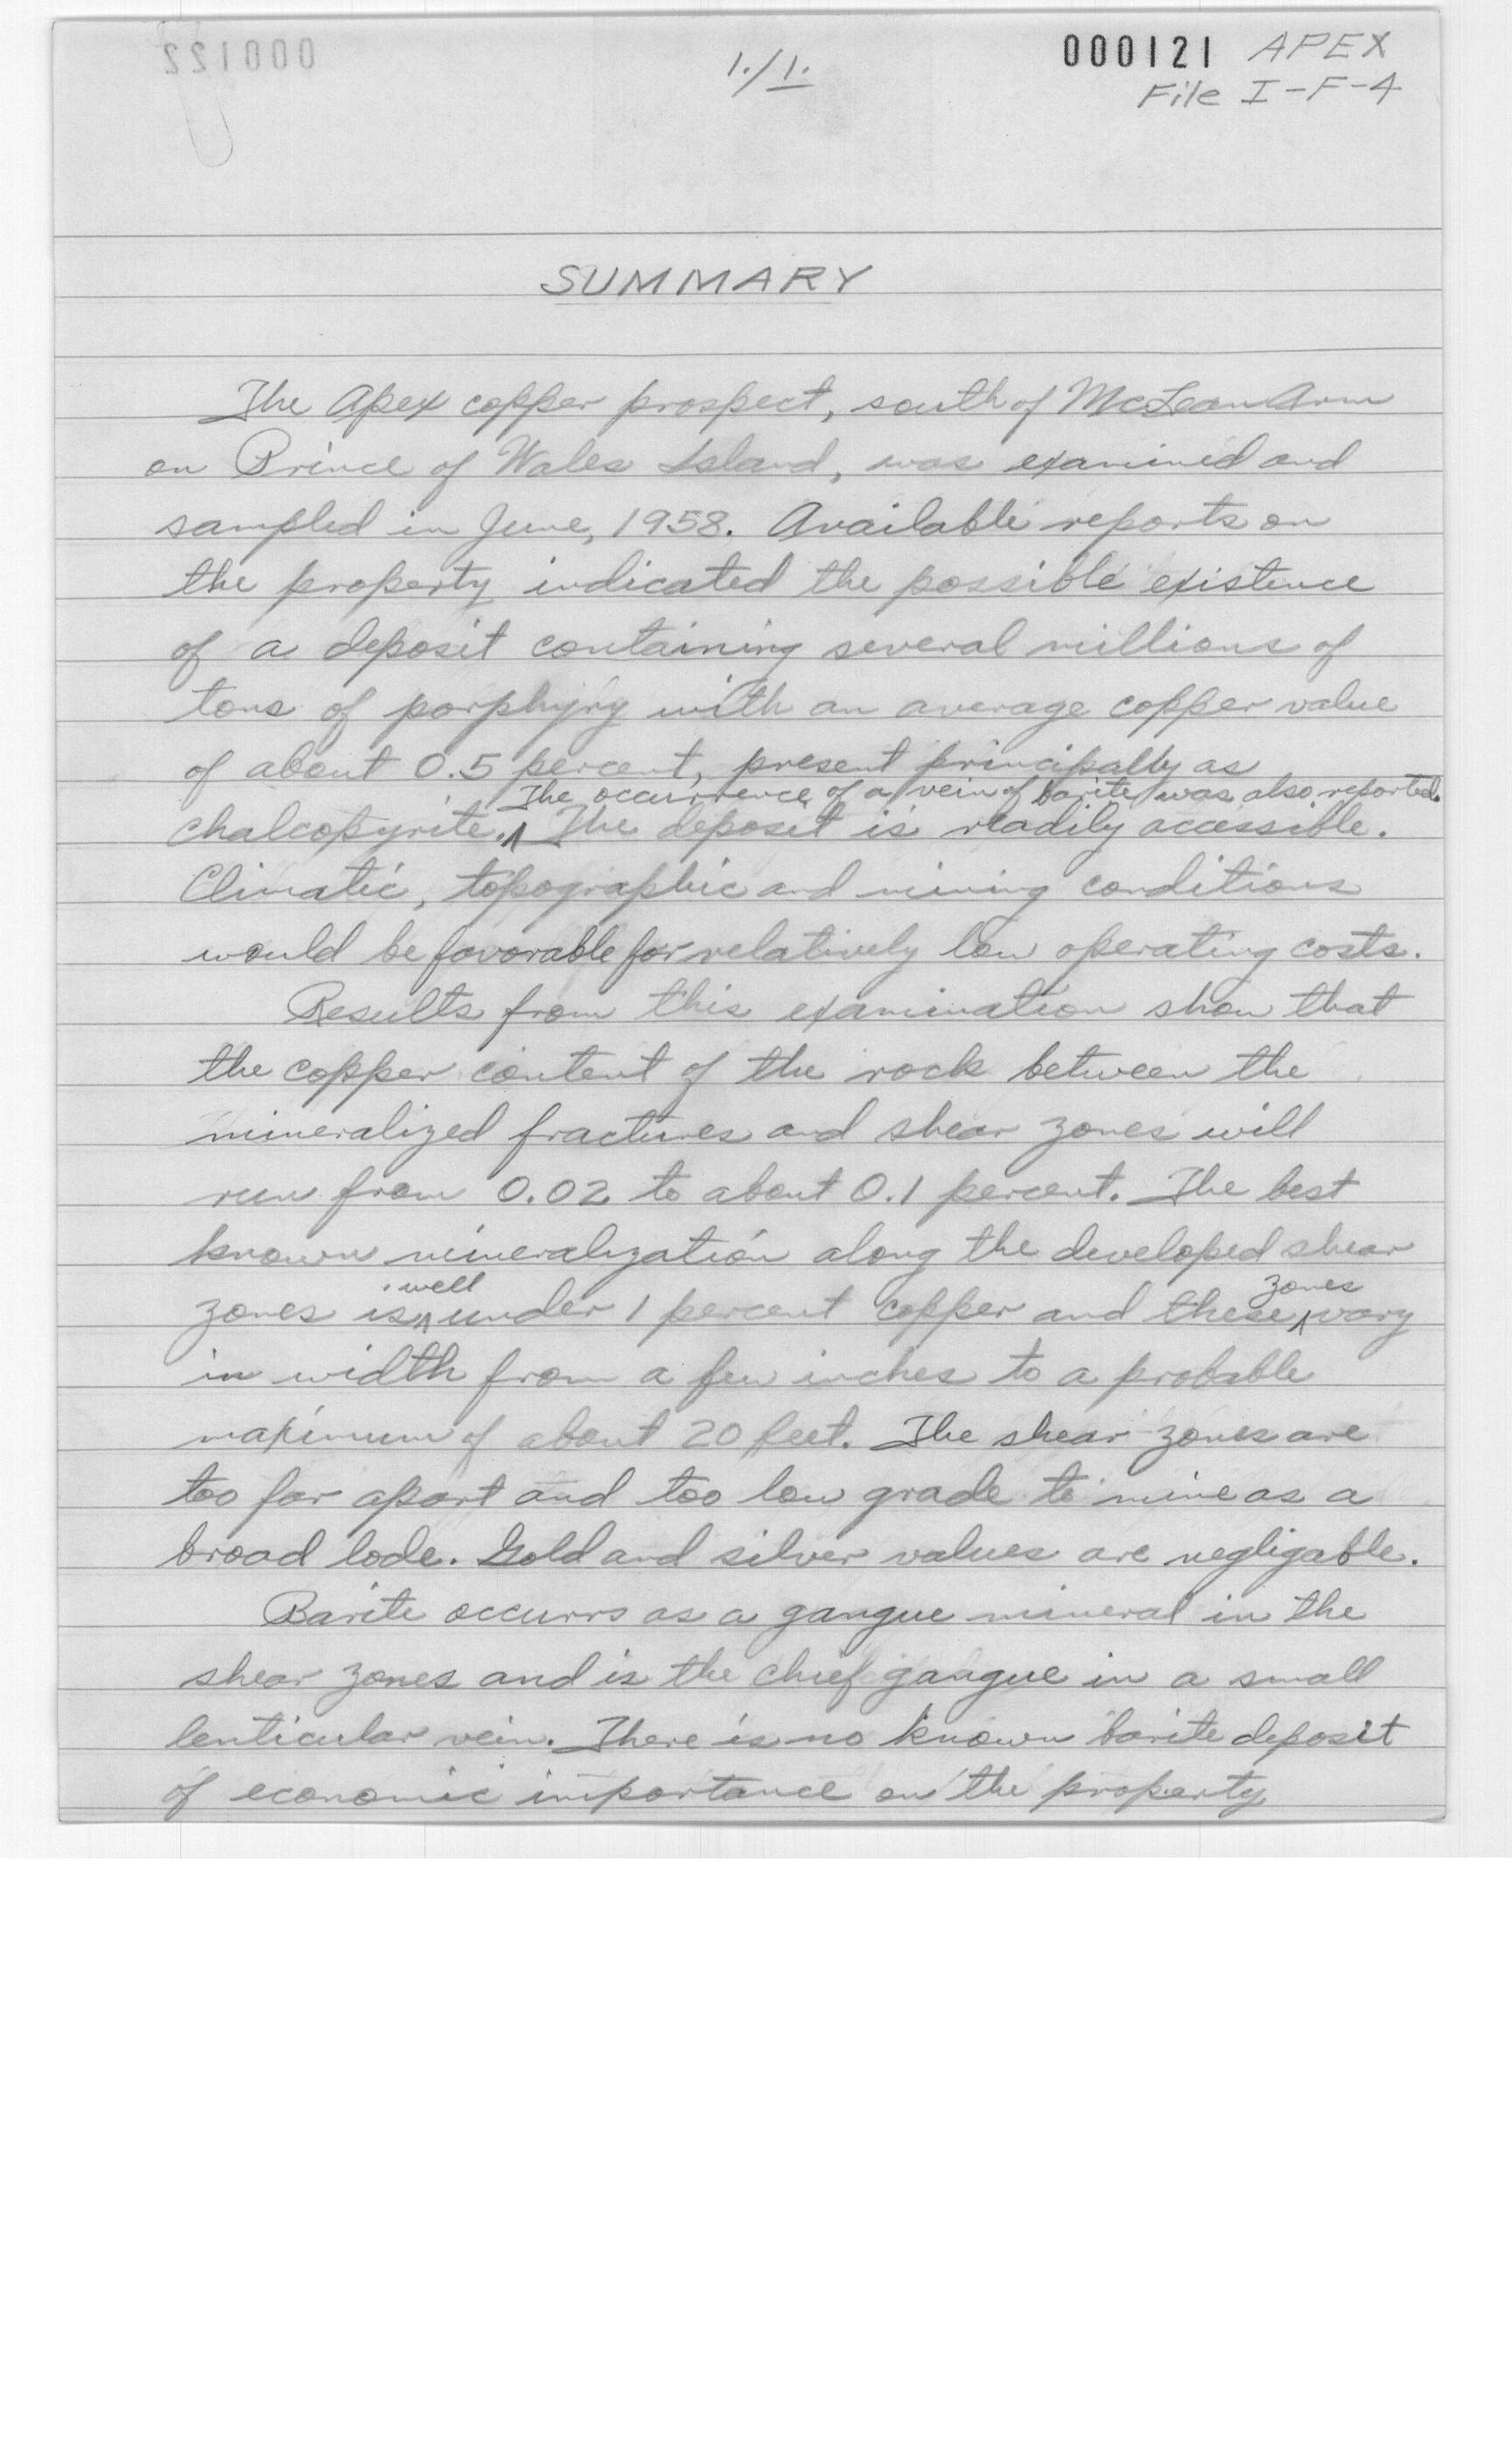 000122
1./1.
000121 APEX
File I-F-4
SUMMARY
The Apex copper prospect, south of McLean Arm
on Prince of Wales Island, was examined and
sampled in June, 1958. Available reports on
the property indicated the possible existence
of a deposit containing several millions of
tons of porphyry with an average copper value
of about 0.5 percent, present principally as
The occurrence of a vein of barite was also reported.
chalcopyrite.^ The deposit is readily accessible.
Climatic, topographic and mining conditions
would be favorable for relatively low operating costs.
Results from this examination show that
the copper content of the rock between the
mineralized fractures and shear zones will
run from 0.02 to about 0.1 percent. The best
known mineralization along the developed shear
well zones
zones is ^ under 1 percent copper and these ^ vary
in width from a few inches to a probable
maximum of about 20 feet. The shear zones are
too far apart and too low grade to mine as a
broad lode. Gold and silver values are negligable.
Barite occurrs as a gangue mineral in the
shear zones and is the chief gangue in a small
lenticular vein. There is no known barite deposit
of economic importance on the property